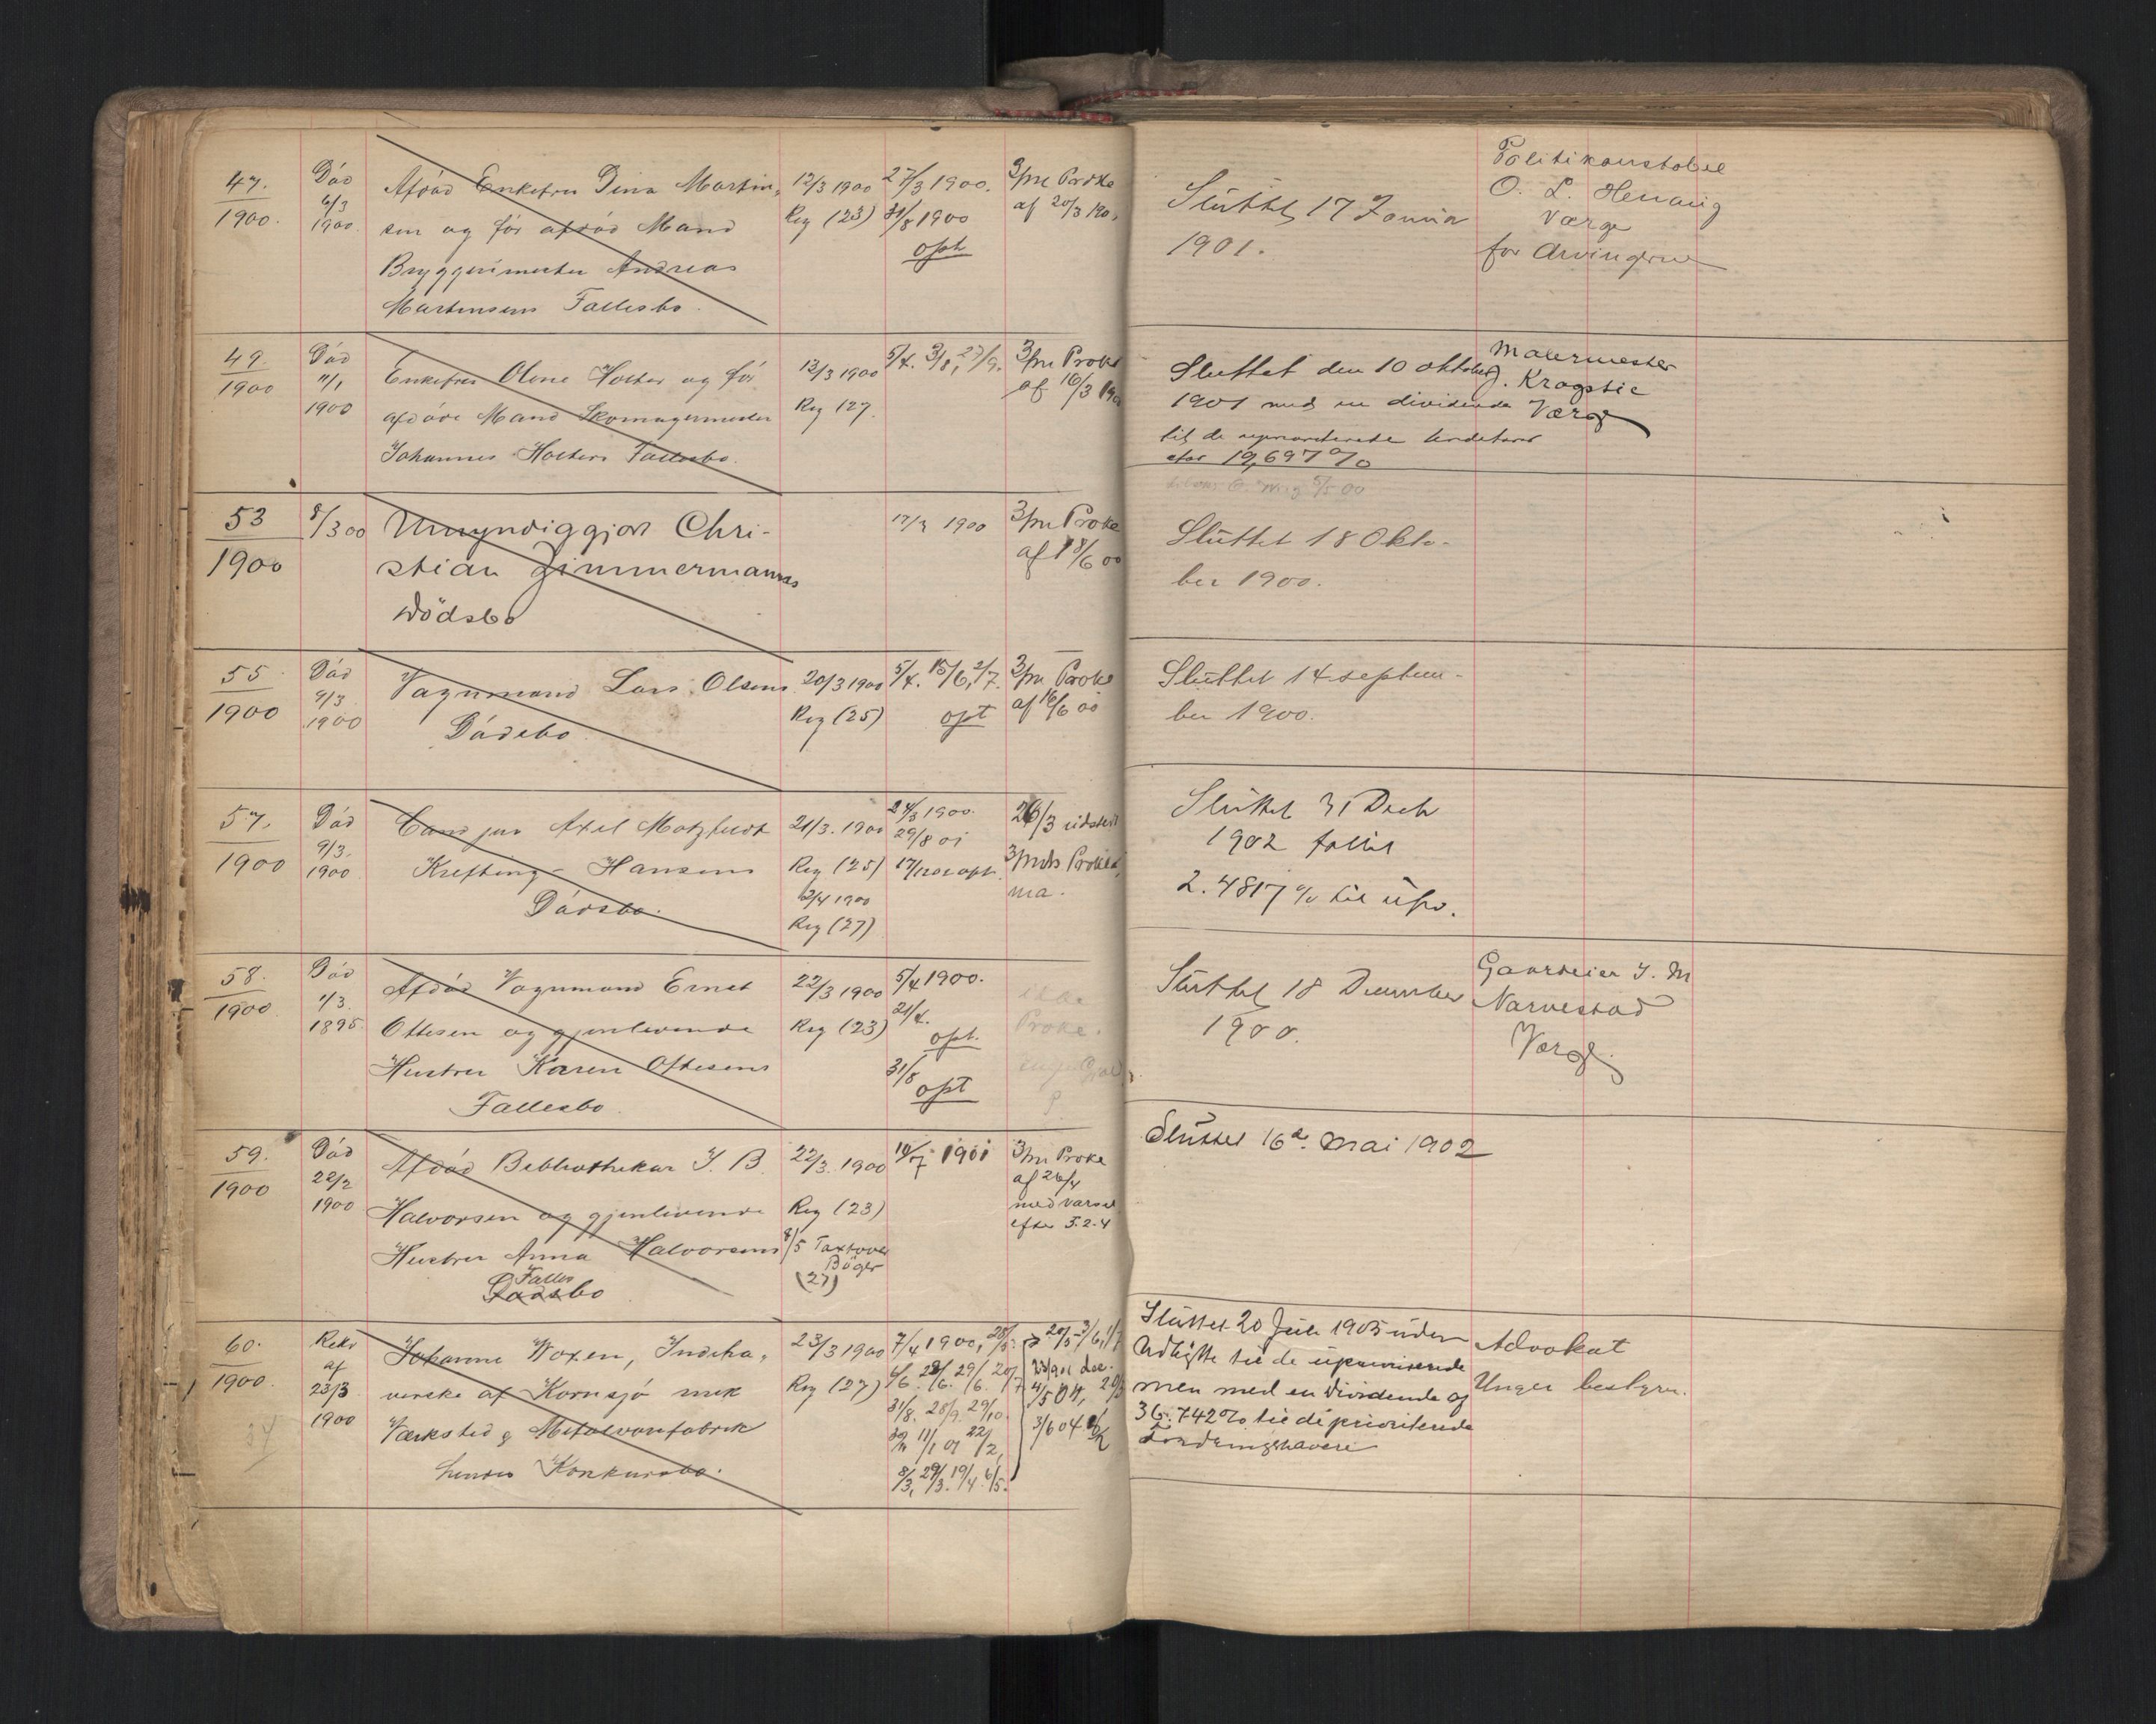 47.
1900.
Död
6/3
1900
Afdöd Enkefru Dina Martin-
sen og för afdöd Mand
Bryggerimester Andreas
Martinsens Fællesbo.
12/3 1900
Reg (23)
27/3 1900.
31/8 1900
opt
3/m Prokl
af 20/3 1900.
Sluttet 17 Janua
1901.
Politikonstabel
O. L. Henanig
Værge
for Arvingerne
49
1900
Död
11/1
1900
Enkefru Oline Holter og för
afdöde Mand Skomagermester
Johannes Holters Fællesbo.
13/3 1900
Reg (27.
5/4. 3/8, 27/9.
3/m Prokl
af 16/3 1900
Sluttet den 10 oktober
1901 med en dividende
til de
efor 19,697%
Malermester
J. Krogstie
Værge
53
1900
8/3 00
Umyndiggjort Chri-
stian Zimmermanns
Dödsbo
17/3 1900
3/m Prokl
af 18/6 00
Sluttet 18 Okto-
ber 1900.
55
1900
Död
9/3
1900
Vognmand Lars Olsens
Dödsbo
20/3 1900
Reg (25)
5/4. 15/6, 2/7.
opt
3/m Prokl
af 16/6 00
Sluttet 14 septem-
ber 1900.
57.
1900
Död
9/3.
1900
Cand jur Axel Motzfeldt
Krefting-Hansens
Dödsbo.
21/3. 1900
Reg (25)
2/4 1900
Reg (27)
24/3 1900.
29/8 01
17/12 02 opt.
26/3 udstedt
3/mds Prokla
ma.
Sluttet 31 Decb
1902 fallit
2.4817 % til upr.
58.
1900
Död
1/3.
1895
Afdöd Vognmand Ernst
Ottesen og gjenlevende
Hustru Karen Ottesens
Fællesbo.
22/3 1900
Reg (23)
5/4 1900.
21/4.
opt.
31/8
opt
ikke
Prokl.
Sluttet 18 December
1900.
Gaardeier J. M
Narvestad
Værge.
59.
1900
Död
22/2
1900
Afdöd Bibliothekar J. B.
Halvorsen og gjenlevende
Hustru Anna Halvorsens
Fælles
Dödsbo
22/3. 1900
Reg (23)
8/5 Taxt over
Böger
(27)
10/7 1901
3/m Prokl
af 26/4
med varsel
efter 5.2.4
Sluttet 16de Mai 1902
60.
1900.
Rekv
af
23/3
1900
Johanne Woxen, Indeha-
verske af Kornsjö mek
Værksted & Metalvarefabrik
hendes Konkursbo.
23/3 1900
Reg (27)
7/4 1900, 28/5.
6/6. 28/6. 29/6. 20/7
31/8. 28/9. 29/10.
11/1 01 22/2,
8/3, 29/3. 19/4. 6/5.
20/5 3/6, 1/7
4/5 04,
3/6 04
Sluttet 20 Juli 1905 uden
Udbytte til de upriviterede
men med en Dividende af
36.742% til de prioriterede
Fordringshavere
Advokat
Unger bestyrer.